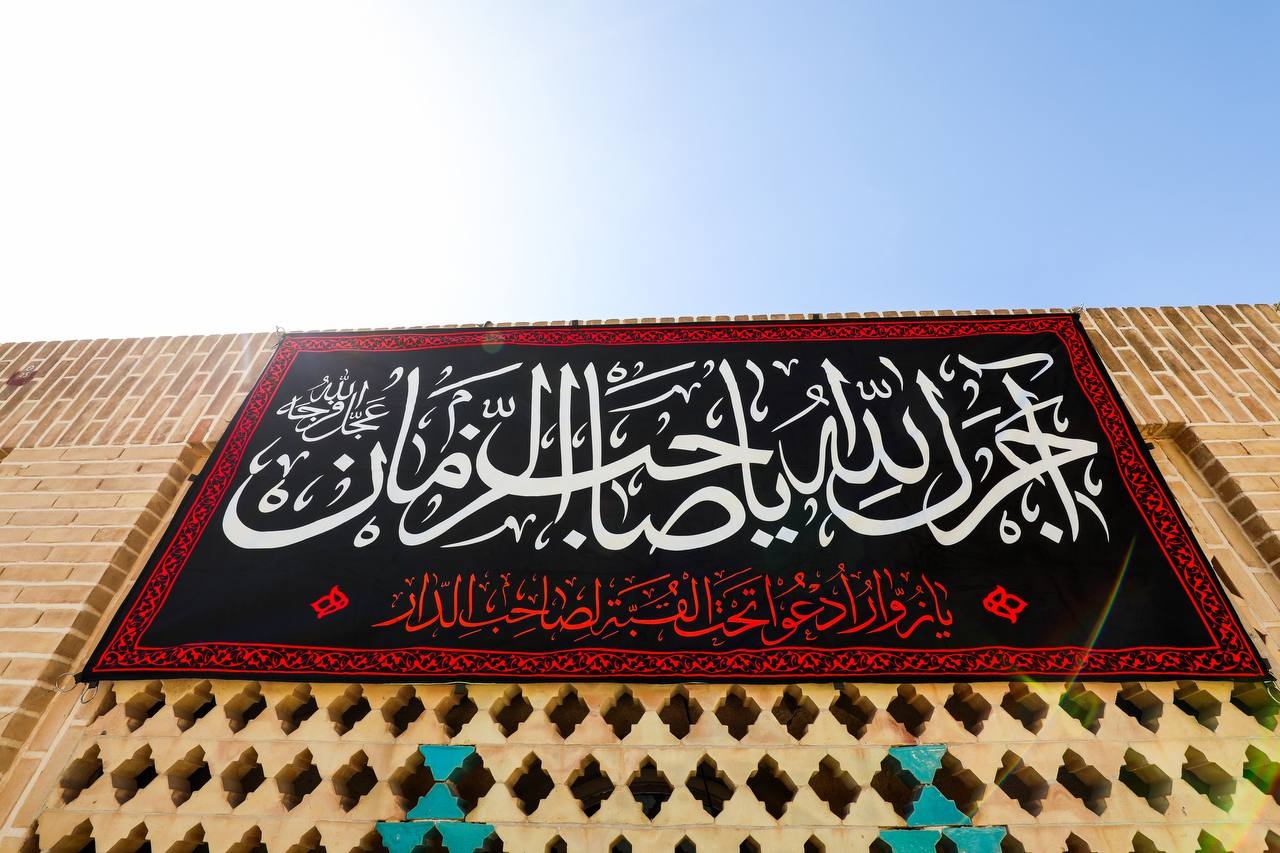 آجَرَكَ اللهُ يا صاحِبَ الزَّمان
عَجَّلَ اللهُ فَرَجَهُ
يا زُوّار أُدْعُوا تَحْتَ القُبَّةِ لِصاحِبِ الدّار